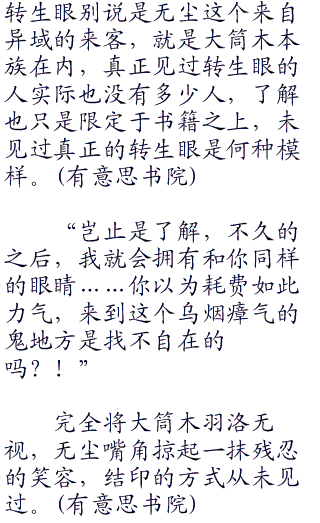 转生眼别说是无尘这个来自
异域的来客，就是大筒木本
族在内，真正见过转生眼的
人实际也没有多少人，了解
也只是限定于书籍之上，未
见过真正的转生眼是何种模
样。(有意思书院)
“岂止是了解，不久的
之后，我就会拥有和你同样
的眼睛……你以为耗费如此
力气，来到这个乌烟瘴气的
鬼地方是找不自在的
吗？！”
完全将大筒木羽洛无
视，无尘嘴角掠起一抹残忍
的笑容，结印的方式从未见
过。(有意思书院)